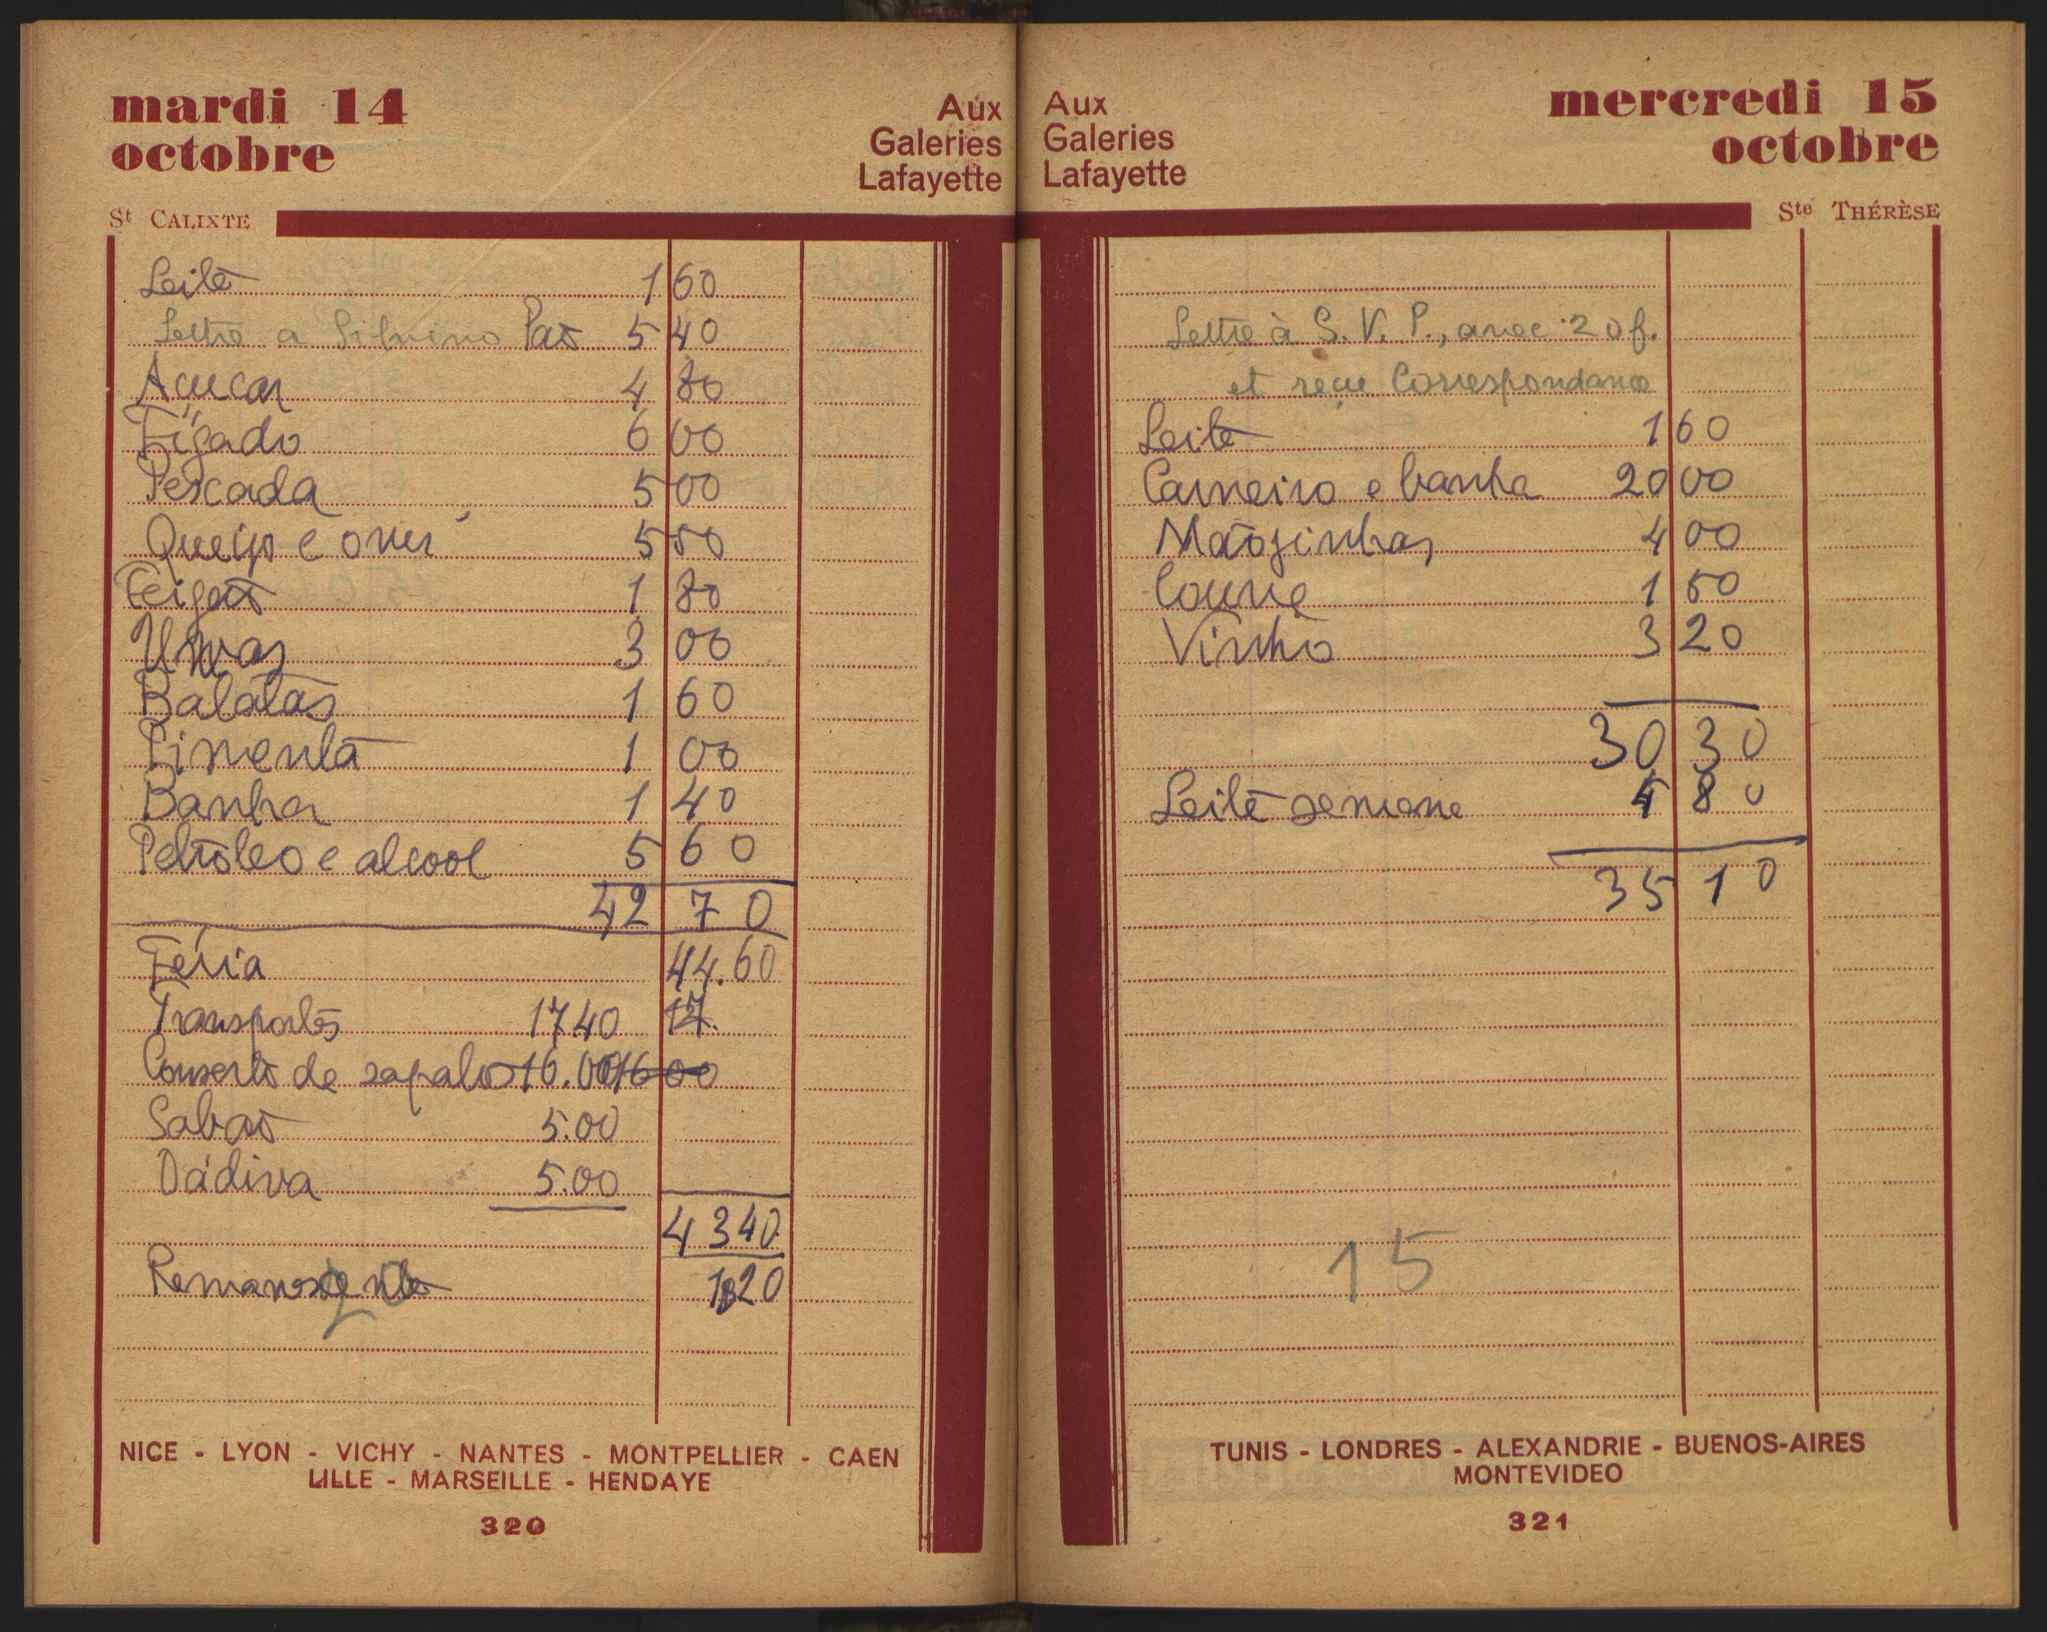 mardi 14
octobre
Aux
Galeries
Lafayette
St CALIXTE
Leite 1 60
Lettre a Silvino Pão 5 40
Açucar 4 80
Fígado 6 00
Pescada 5 00
Queijo e ovos 5 50
Feijão 1 80
Uvas 3 00
Batatas 1 60
Pimenta 1 00
Banha 1 40
Petroleo e alcool 5 60
42 70
Féria 44.60
Transportes 17 40 17.
Conserto de sapatos 16.00 16 00
Sabão 5.00
Dádiva 5.00
43 40
Remanescente 1 20
NICE - LYON - VICHY - NANTES - MONTPELLIER - CAEN
LILLE - MARSEILLE - HENDAYE
320
Aux
Galeries
Lafayette
mercredi 15
octobre
Ste THÉRÈSE
Lettre à S. V. P., avec 20 f.
et reçue Correspondance
Leite 1 60
Carneiro e banha 20 00
Mãozinhas 4 00
Couve 1 50
Vinho 3 20
30 30
Leite semana 4 80
35 10
15
TUNIS - LONDRES - ALEXANDRIE - BUENOS-AIRES
MONTEVIDEO
321